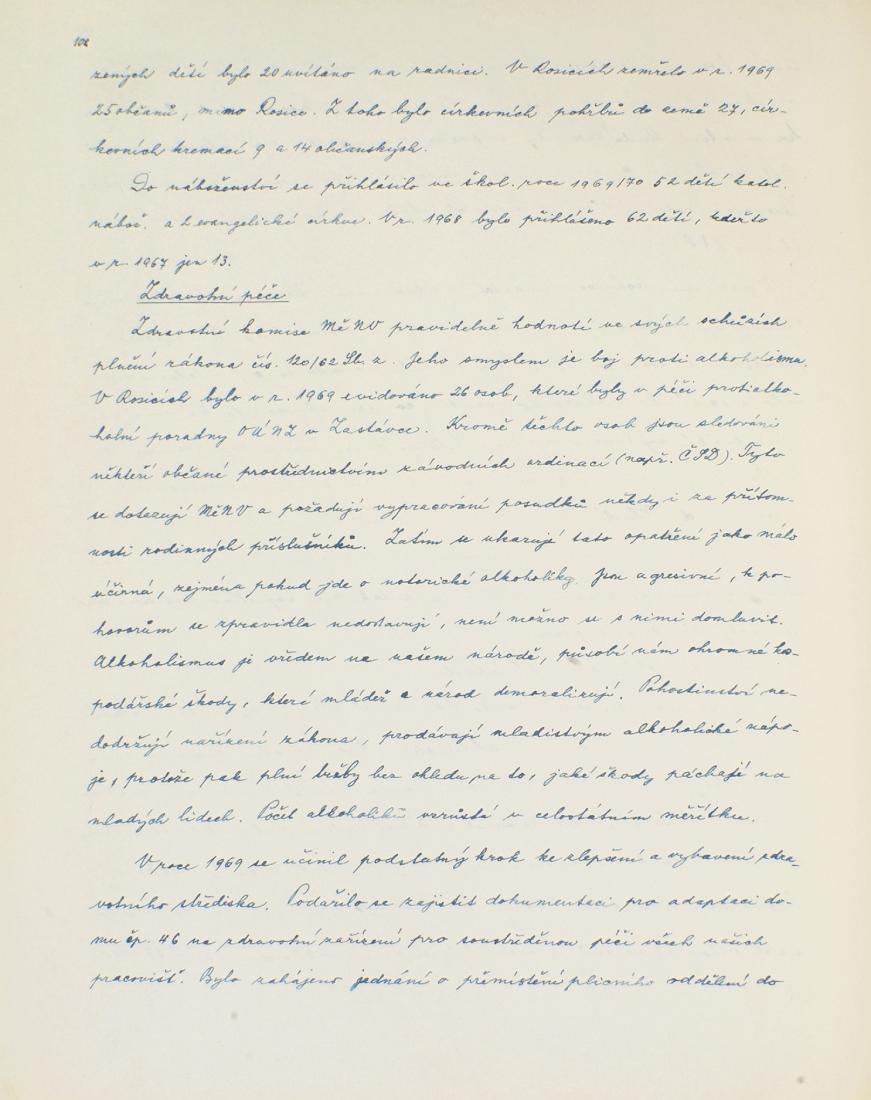 102
zených dětí bylo 20 uvítáno na radnici. V Rosicích zemřelo v r. 1969
25 občanů, mimo Rosice. Z toho bylo církevních pohřbů do země 27, cír-
kevních kremací 9 a 14 občanských.
Do náboženství se přihlásilo ve škol. roce 1969/70 52 dětí katol.
nábož. a 2 evangelické církve. V r. 1968 bylo přihlášeno 62 dětí, kdežto
v r. 1967 jen 13.
Zdravotní péče
Zdravotní komise MěNV pravidelně hodnotí ve svých schůzích
plnění zákona čís. 120/62 Sb. z. Jeho smyslem je boj proti alkoholismu.
V Rosicích bylo v r. 1969 evidováno 26 osob, které byly v péči protialko-
holní poradny OÚNZ v Zastávce. Kromě těchto osob jsou sledováni
někteří občané prostřednictvím závodních ordinací (např. ČSD). Tyto
se dotazují MěNV a požadují vypracování posudků někdy i za přítom-
nosti rodinných příslušníků. Zatím se ukazují tato opatření jako málo
účinná, zejména pokud jde o notorické alkoholiky. Jsou agresivní, k po-
hovorům se zpravidla nedostavují, není možno se s nimi domluvit.
Alkoholismus je vředem na našem národě, působí nám ohromné hos-
podářské škody, které mládež a národ demoralizují. Pohostinství ne-
dodržují nařízení zákona, prodávají mladistvým alkoholické nápo-
je, protože pak plní tržby bez ohledu na to, jaké škody páchají na
mladých lidech. Počet alkoholiků vzrůstá v celostátním měřítku.
V roce 1969 se učinil podstatný krok ke zlepšení a vybavení zdra-
votního střediska. Podařilo se zajistit dokumentaci pro adaptaci do-
mu čp. 46 na zdravotní zařízení pro soustředěnou péči všech našich
pracovišť. Bylo zahájeno jednání o přemístění plicního oddělení do